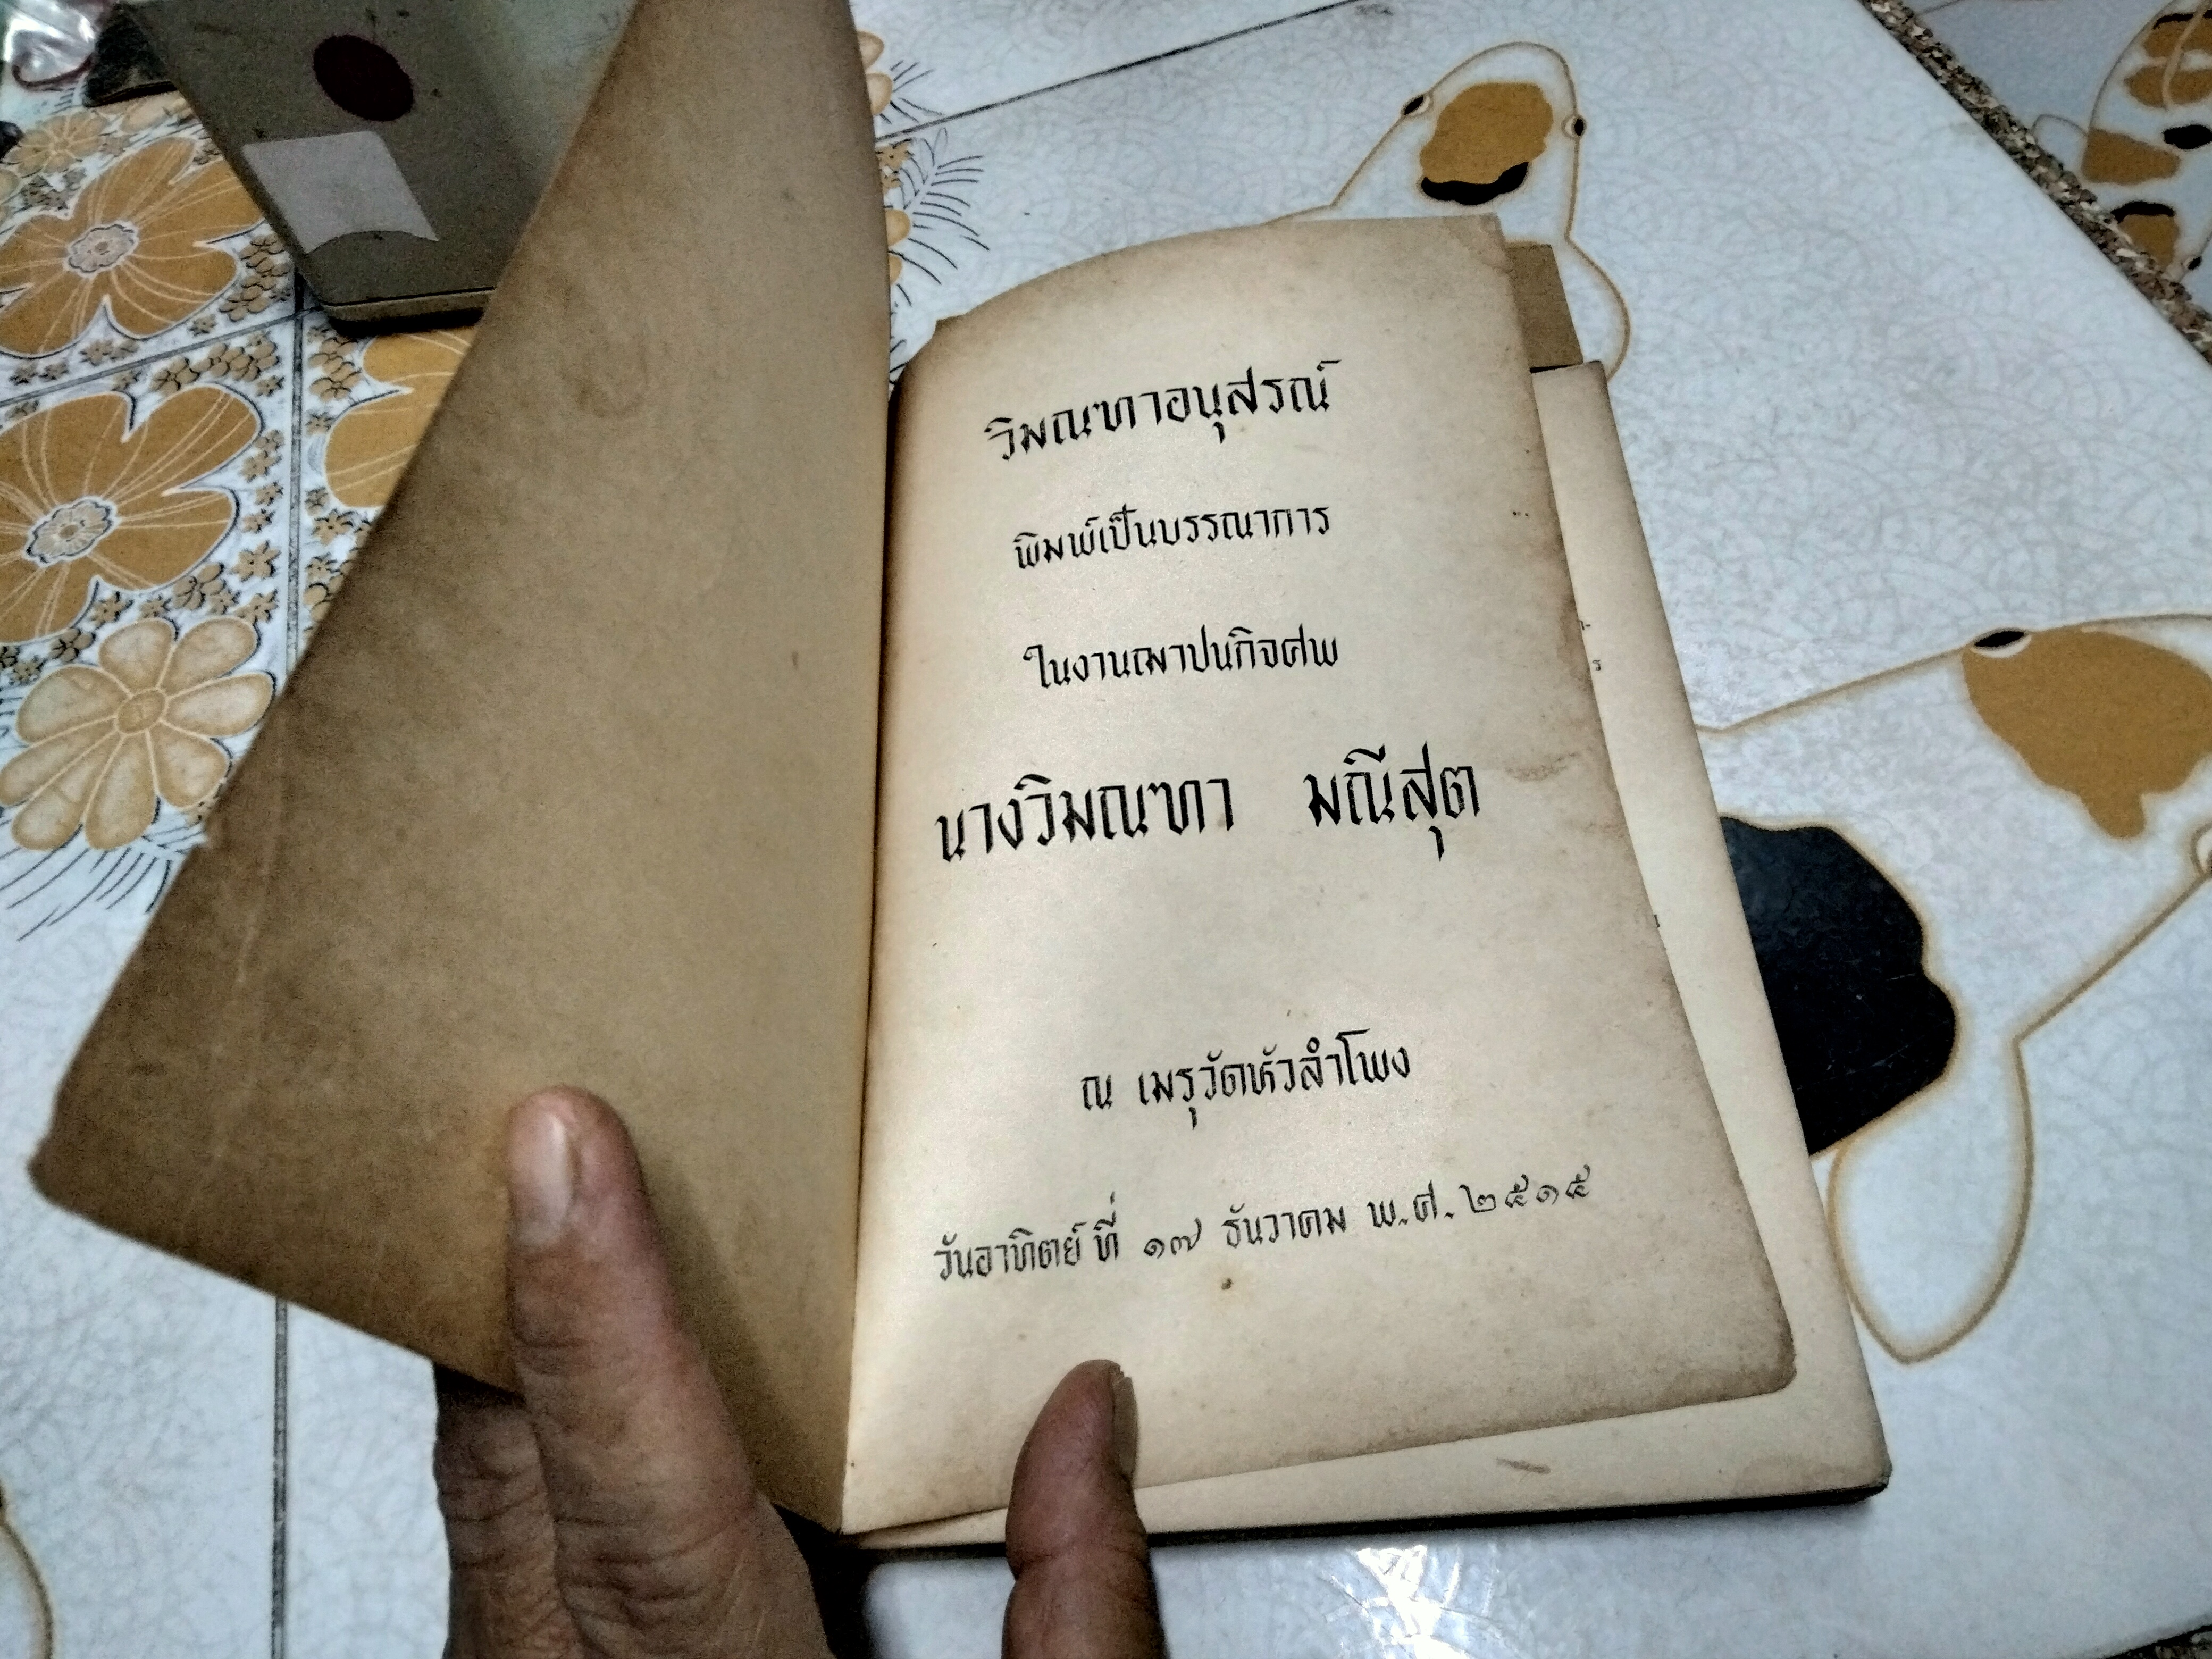 วิมณฑาอนุสรณ์
พิมพ์เป็นบรรณาการ
ในงานฌาปนกิจศพ
นางวิมณฑา มณีสุต
ณ เมรุวัดหัวลำโพง
วันอาทิตย์ที่ ๑๗ ธันวาคม พ.ศ. ๒๕๑๕